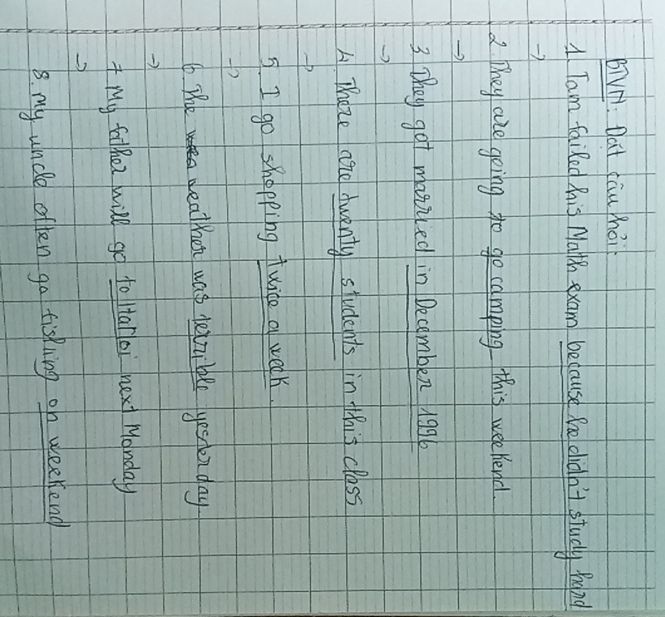 BTVN: Đặt câu hỏi:
1. Tom failed his Math exam because he didn't study hard
→
2. They are going to go camping this weekend.
→
3. They got married in December 1996
→
4. There are twenty students in this class
→
5. I go shopping twice a week.
→
6. The weather was terrible yesterday.
→
7. My father will go to Ha Noi next Monday
→
8. My uncle often go fishing on weekend